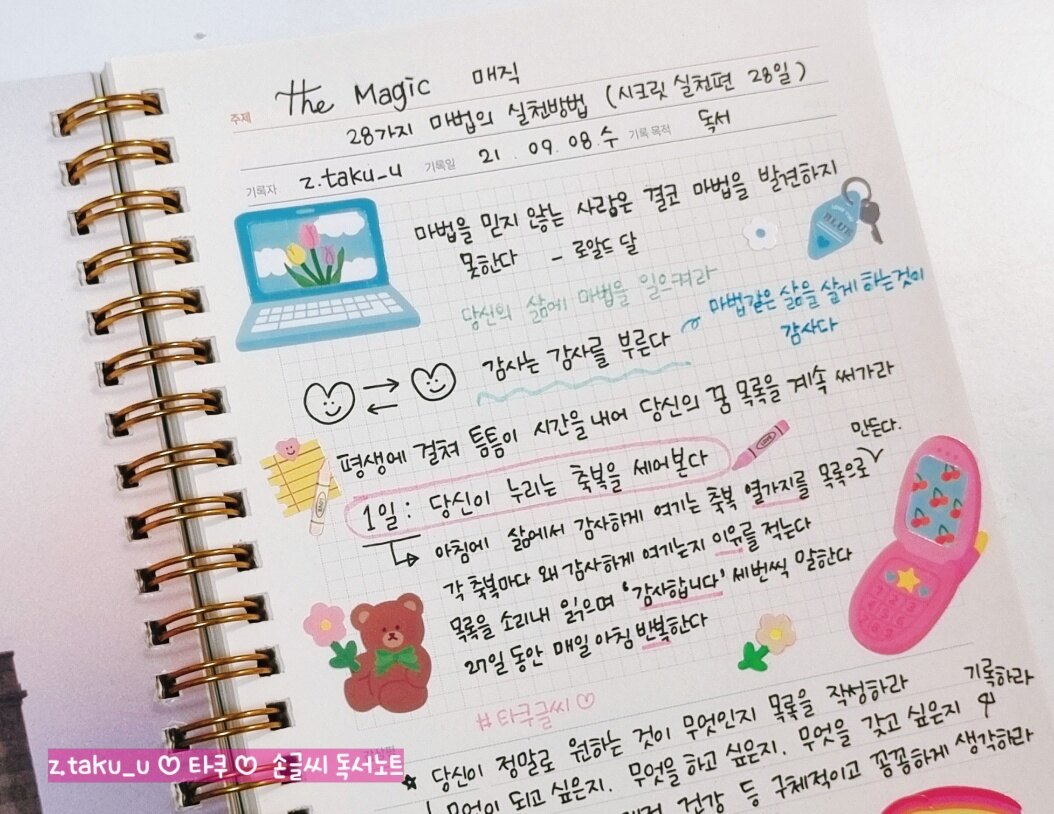 주제 the Magic 매직
28가지 마법의 실천방법 (시크릿 실천편 28일)
기록자 z.taku_u 기록일 21. 09. 08. 수 기록 목적 독서
마법을 믿지 않는 사람은 결코 마법을 발견하지
못한다 - 로알드 달
당신의 삶에 마법을 일으켜라
마법같은 삶을 살게 하는것이
감사다
감사는 감사를 부른다
평생에 걸쳐 틈틈이 시간을 내어 당신의 꿈 목록을 계속 써가라
1일: 당신이 누리는 축복을 세어본다
만든다.
아침에 삶에서 감사하게 여기는 축복 열가지를 목록으로
각 축복마다 왜 감사하게 여기는지 이유를 적는다
목록을 소리내 읽으며 '감사합니다' 세번씩 말한다
27일 동안 매일 아침 반복한다
#타쿠글씨♡
당신이 정말로 원하는 것이 무엇인지 목록을 작성하라 기록하라
무엇이 되고 싶은지. 무엇을 하고 싶은지. 무엇을 갖고 싶은지
건강 등 구체적이고 꼼꼼하게 생각하라
z.taku_u ♡ 타쿠 ♡ 손글씨 독서노트